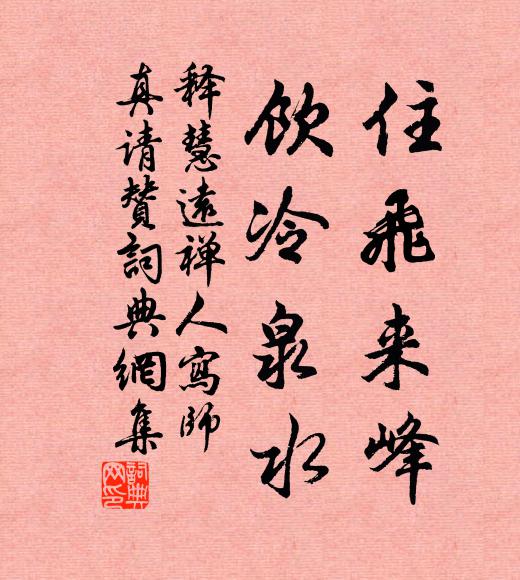 住飛来峰
飲冷泉水
释慧遠禅人寫師
真请赞詞典網集
詞典
网印